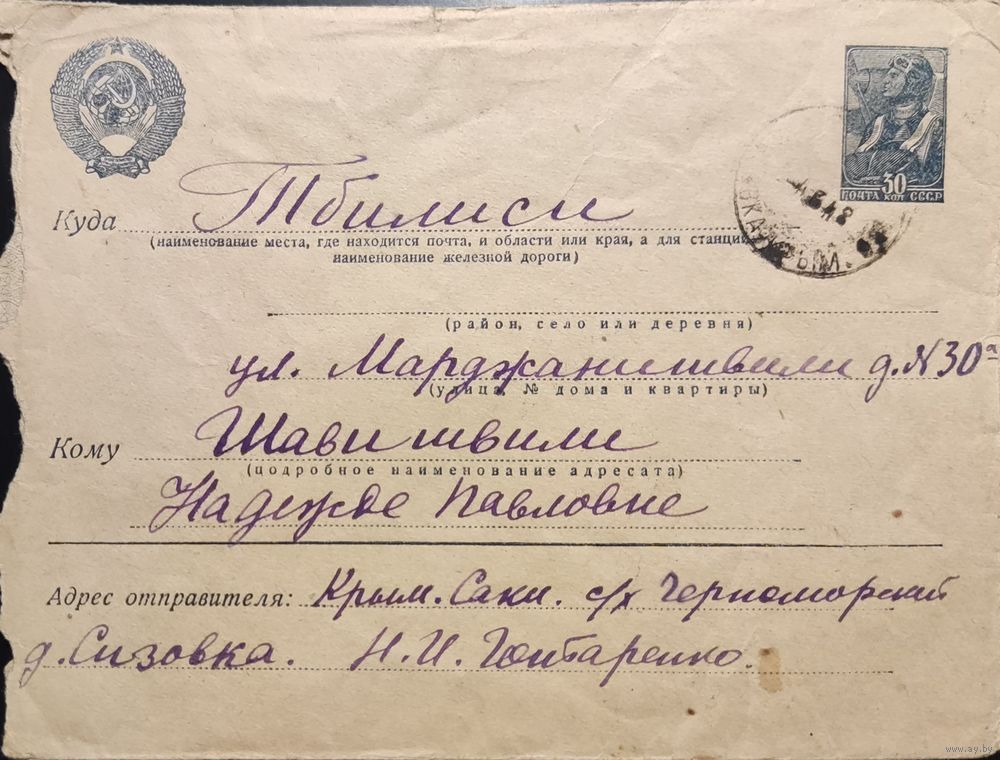 30
ПОЧТА КОП СССР
Куда Тбилиси
(наименование места, где находится почта, и области или края, а для станций
наименование железной дороги)
(район, село или деревня)
ул. Марджанишвили д. № 30а
(улица, № дома и квартиры)
Кому Шавишвили
(подробное наименование адресата)
Надежде Павловне
Адрес отправителя: Крым. Саки. с/х Черноморский
д. Сизовка. Н. И. Гонтаренко.
www.ay.by